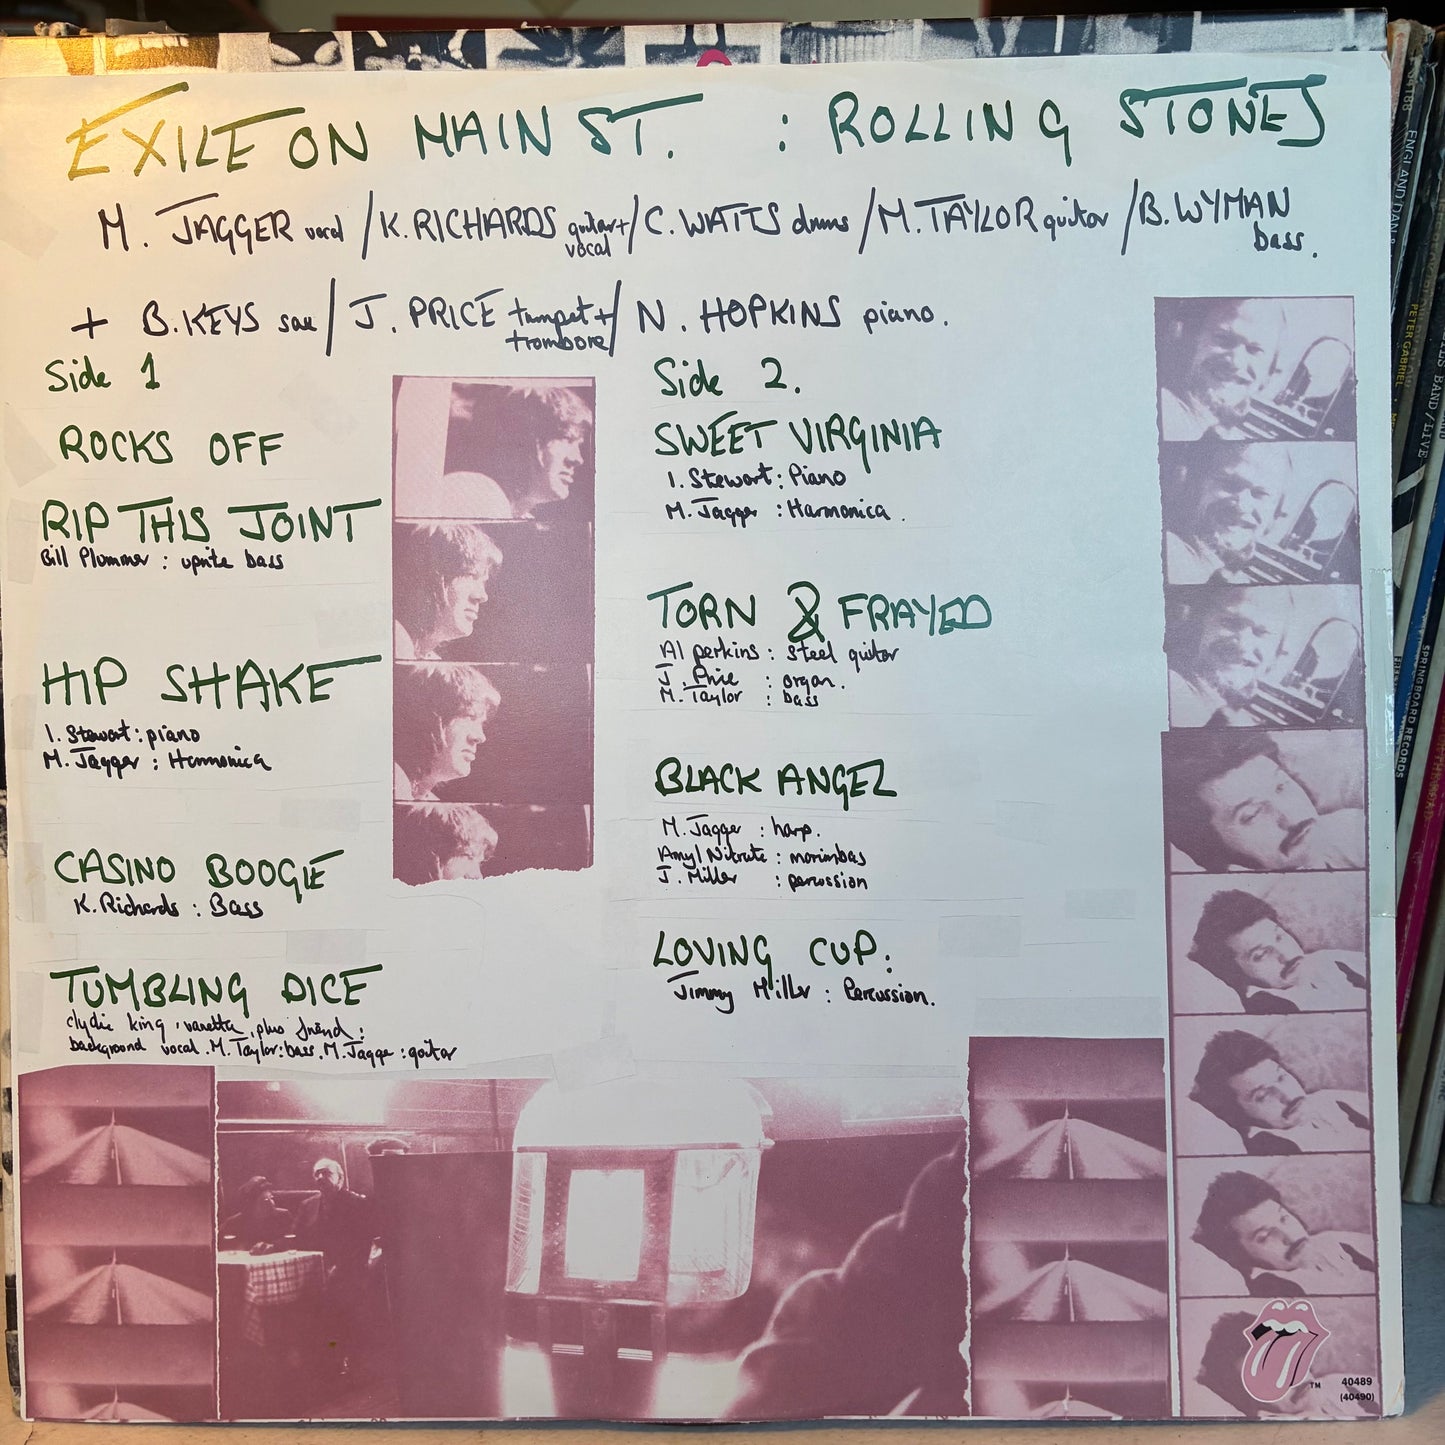 EXILE ON MAIN ST. : ROLLING STONES
M. JAGGER vocal / K. RICHARDS guitar + vocal / C. WATTS drums / M. TAYLOR guitar / B. WYMAN bass.
+ B. KEYS sax / J. PRICE trumpet + trombone / N. HOPKINS piano.
Side 1
ROCKS OFF
RIP THIS JOINT
Bill Plummer : uprite bass
HIP SHAKE
I. Stewart : piano
M. Jagger : Harmonica
CASINO BOOGIE
K. Richards : Bass
TUMBLING DICE
clydie king, vanetta, plus friend :
background vocal. M. Taylor : bass. M. Jagger : guitar
Side 2.
SWEET VIRGINIA
I. Stewart : Piano
M. Jagger : Harmonica.
TORN & FRAYED
Al perkins : steel guitar
J. Price : organ.
M. Taylor : bass
BLACK ANGEL
M. Jagger : harp.
Amyl Nitrate : marimbas
J. Miller : percussion
LOVING CUP :
Jimmy Miller : Percussion.
TM
40489
(40490)
PETER GABRIEL
BAND / LIVE
SPRINGBOARD RECORDS